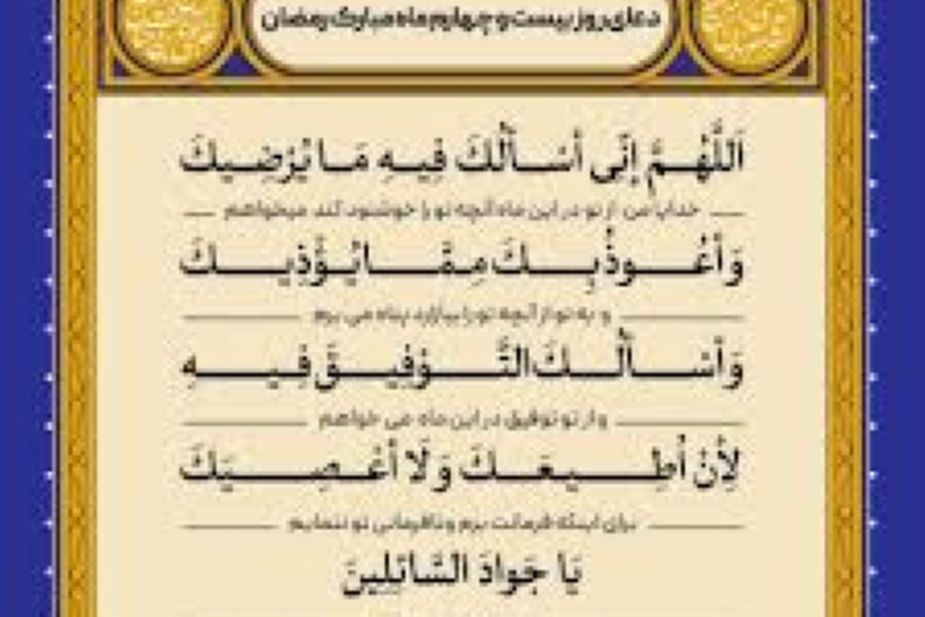 دعای روز بیست و چهارم ماه مبارک رمضان
اَللَّهُمَّ إِنِّی أَسْأَلُكَ فِیهِ مَا یُرْضِیكَ
خدایا من از تو در این ماه آنچه تو را خوشنود کند میخواهم
وَأَعُوذُ بِكَ مِمَّا یُؤْذِیكَ
و به تو از آنچه تو را بیازارد پناه می برم
وَأَسْأَلُكَ التَّوْفِیقَ فِیهِ
و از تو توفیق در این ماه می خواهم
لِأَنْ أُطِیعَكَ وَلَا أَعْصِیَكَ
برای اینکه فرمانت برم و نافرمانی تو ننمایم
یَا جَوادَ السَّائِلِینَ